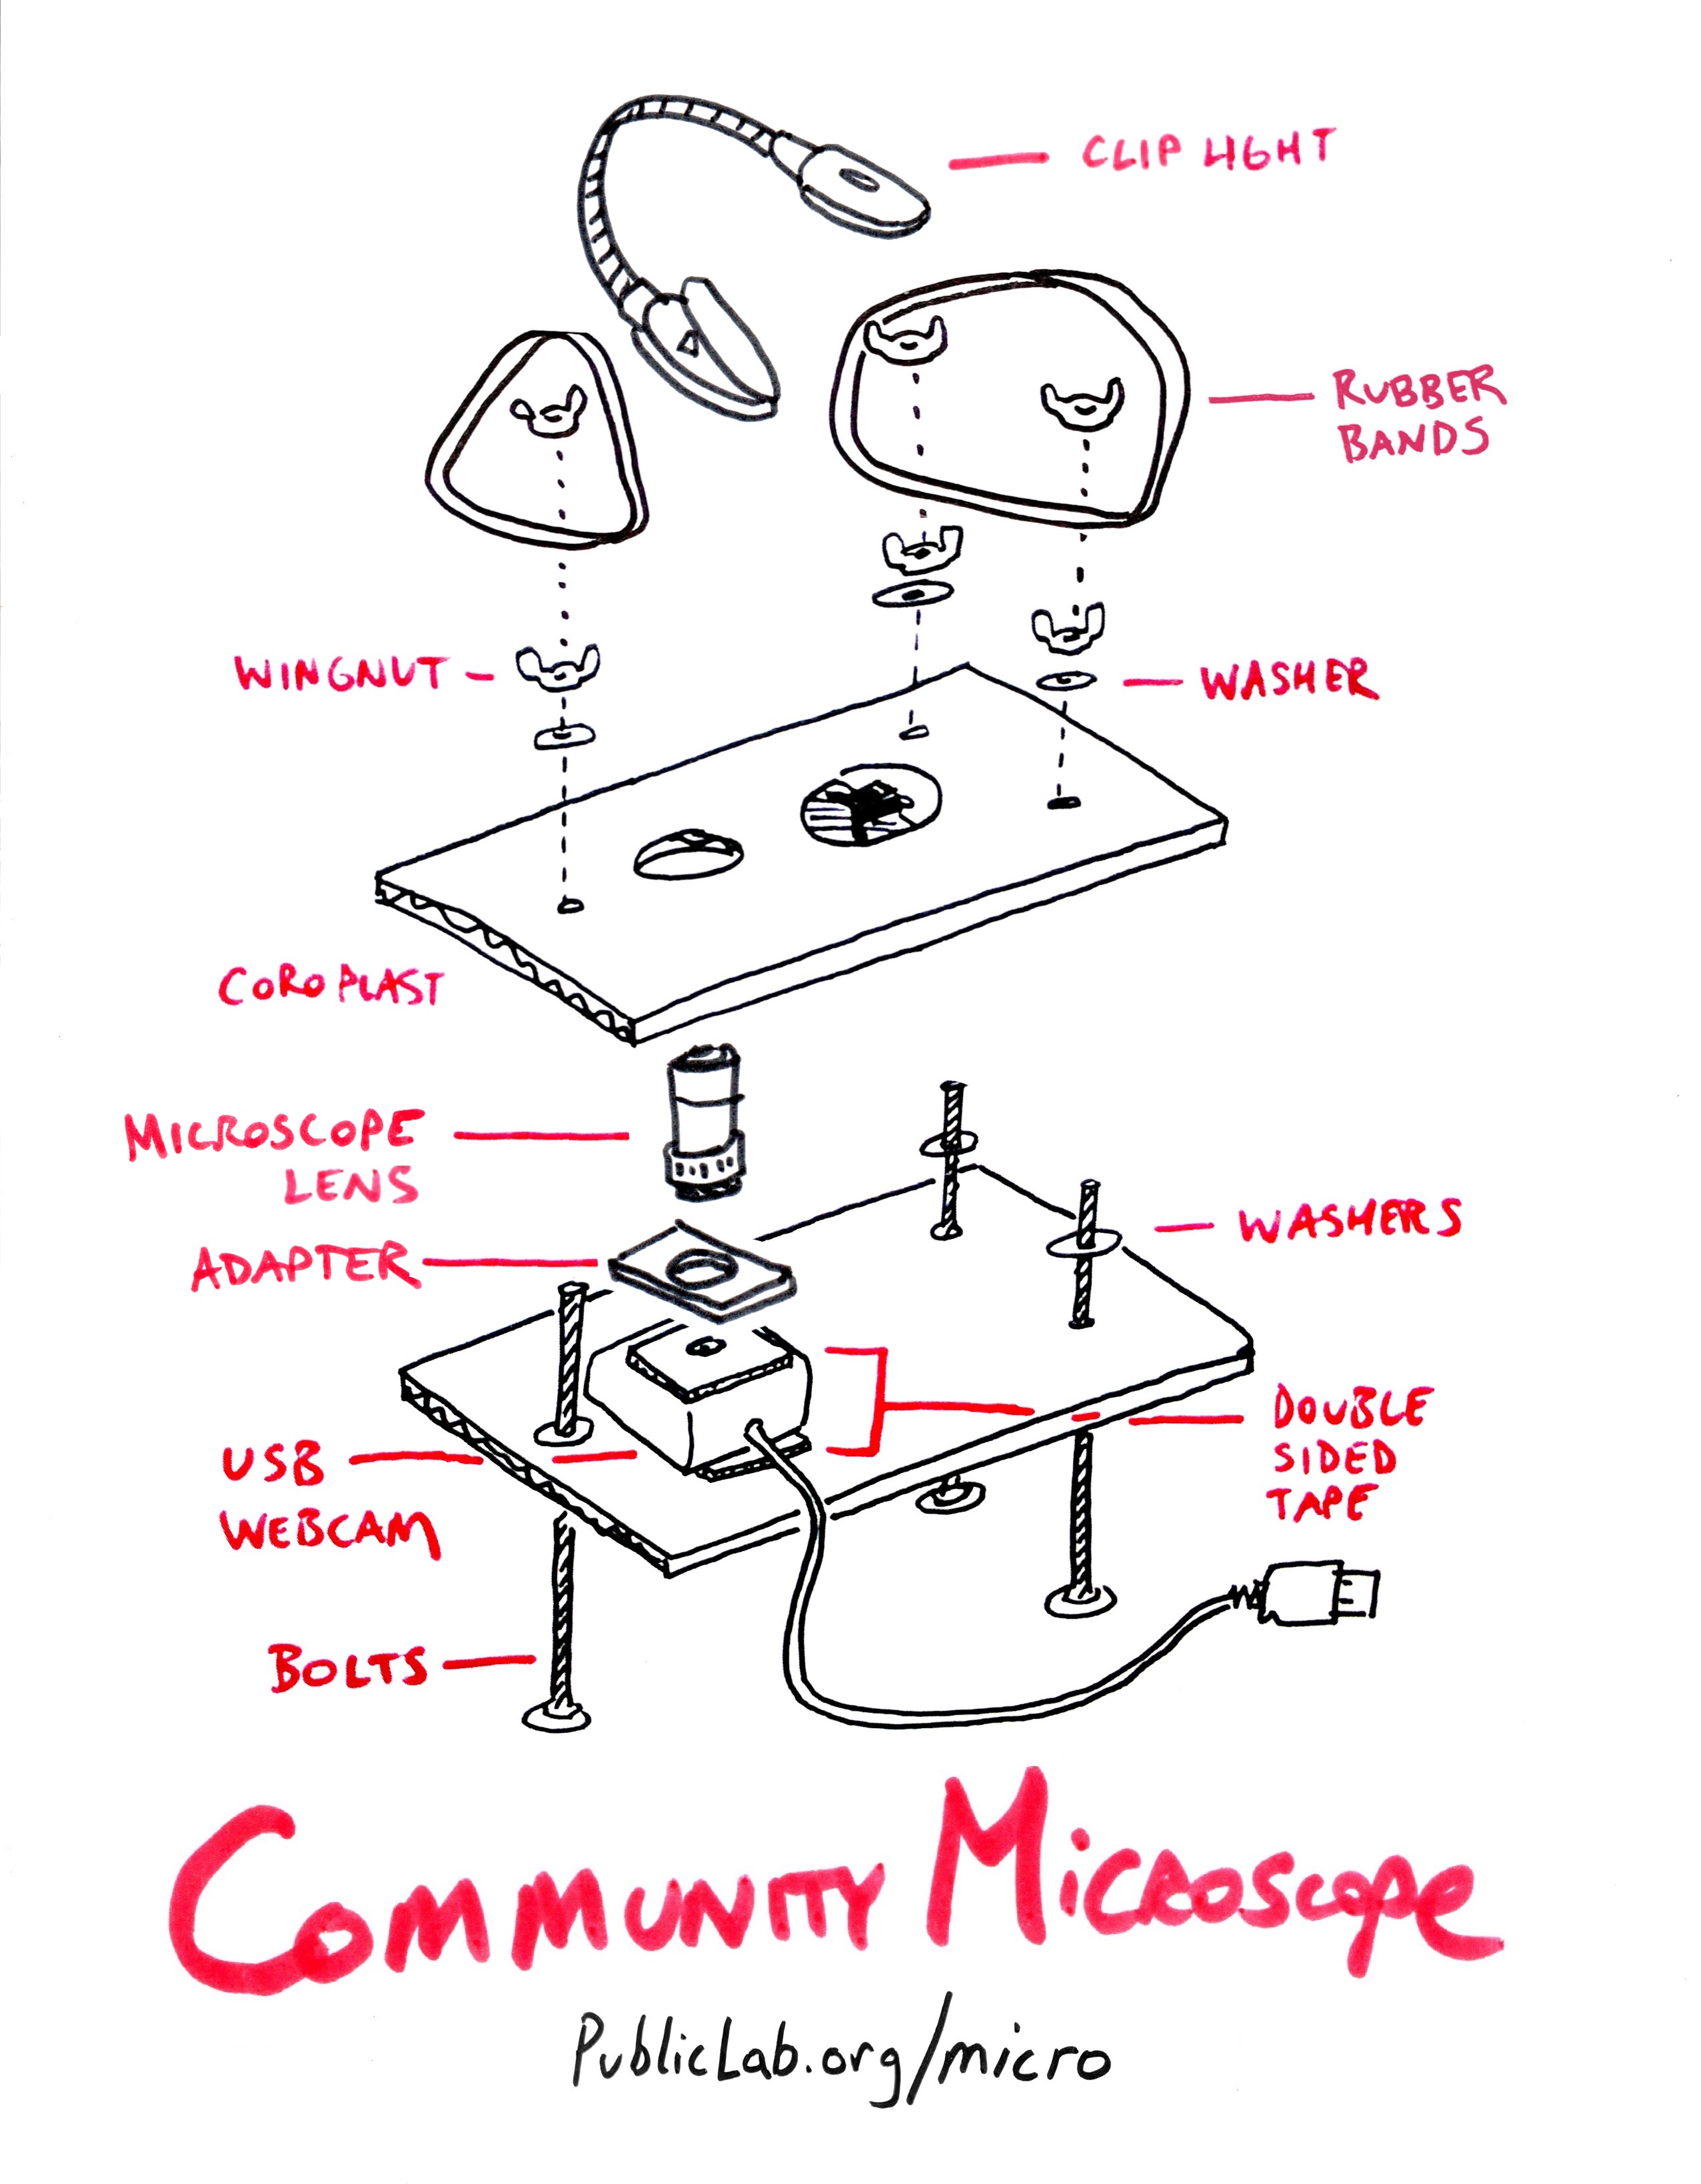 CLIP LIGHT
RUBBER
BANDS
WINGNUT
WASHER
COROPLAST
MICROSCOPE
LENS
WASHERS
ADAPTER
DOUBLE
SIDED
TAPE
USB
WEBCAM
BOLTS
COMMUNITY MICROSCOPE
PublicLab.org/micro